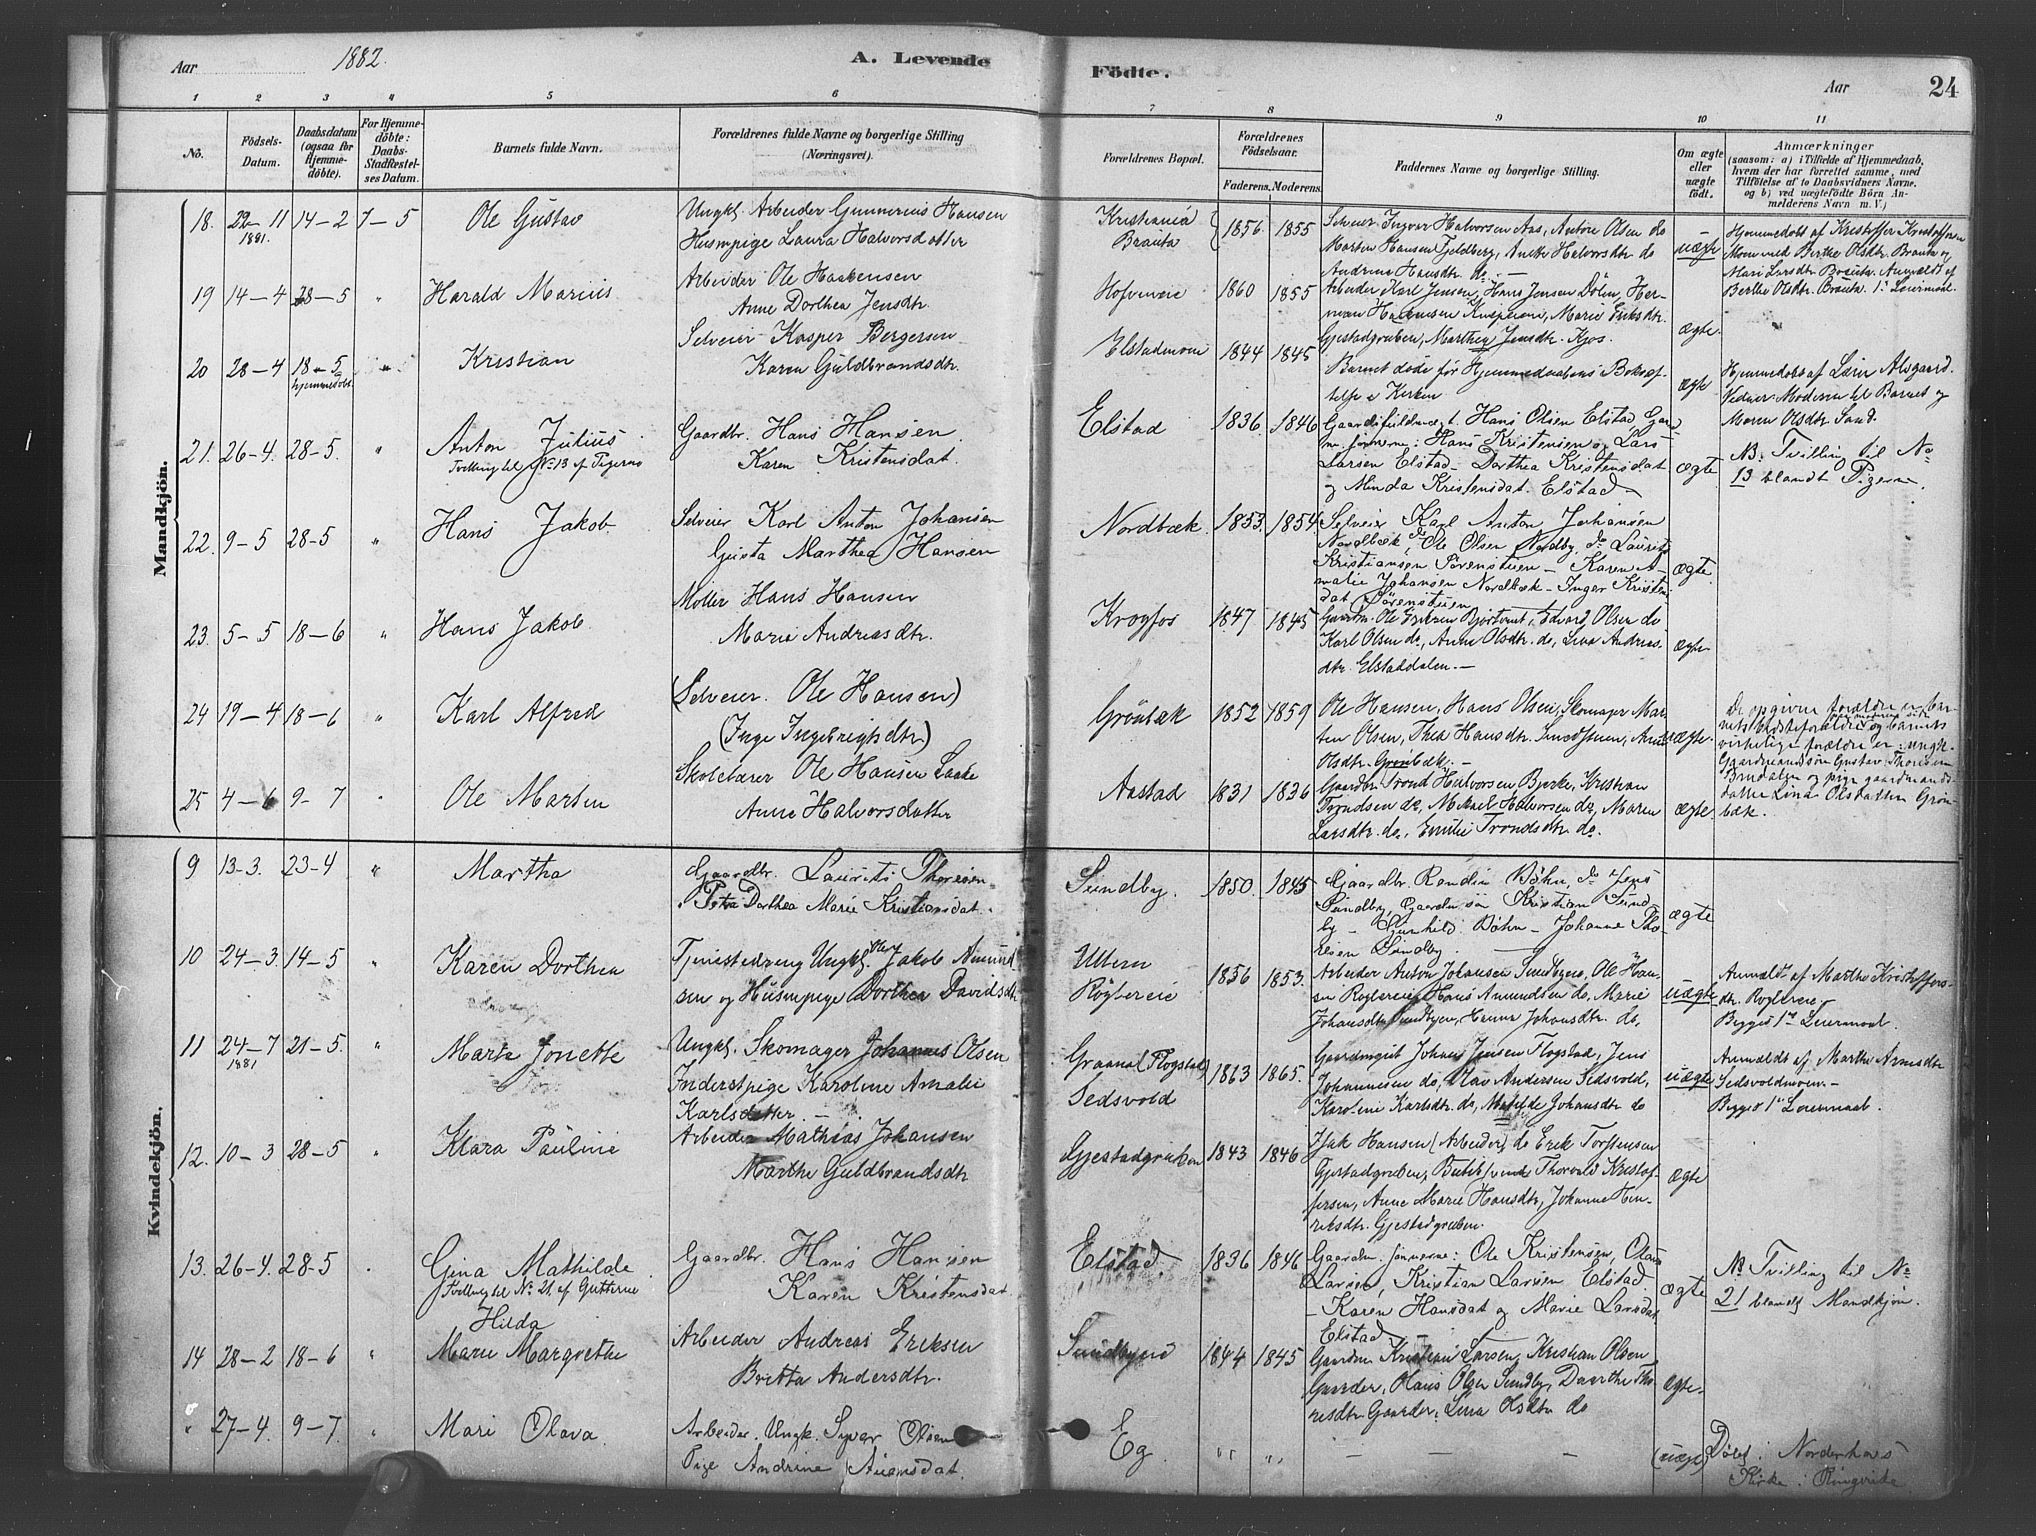 Aar 1882. A. Levende
Födte. Aar 24
1 2 3 4 5 6
7 8 9 10 11
Nö.
Födsels-
Datum.
Daabsdatum
(ogsaa for
Hjemme-
döbte).
For Hjemme-
döbte:
Daabs-
Stadfæstel-
ses Datum.
Barnets fulde Navn.
Forældrenes fulde Navne og borgerlige Stilling
(Næringsvei).
Forældrenes Bopæl.
Forældrenes
Födselsaar.
Faderens. Moderens.
Faddernes Navne og borgerlige Stilling.
Om ægte
eller
uægte
födt.
Anmærkninger
(saasom: a) i Tilfælde af Hjemmedaab,
hvem der har forrettet samme, med
Tilföielse af to Daabsvidners Navne,
og b) ved uægtefödte Börn An-
melderens Navn m. V.)
Mandkjön.
18. 22-11 1881. 14-2 7-5 Ole Gustav
Ungkl. Arbeider Gunnerius Hansen
Huspige Laura Halvorsdatter
Kristiania
Brauta
1856 1855
Selveier Ingvar Halvorsen Aas, Antore Olsen do
Morten Hansen Fjeldberg, Anette Halvorsdtr do
Andrine Hansdtr do.
uægte
Hjemmedöbt af Kristoffer Kristoffersen
Moen ved Berthe Olsdtr. Brauta og
Mari Larsdtr Brauta. Anmeldt af
Berthe Olsdtr. Brauta. 1ste Leiermaal.
19 14-4 28-5 " Harald Marius
Arbeider Ole Haakensen
Anne Dorthea Jensdtr
Hofveie 1860 1855
Arbeider Karl Jensen, Hans Jensen Dölin, Her-
man Hansen, Marie Eriksdtr.
Gjestadgruben, Marthea Jensdtr. Kjos.
ægte.
20 28-4 18-5 hjemmedöbt " Kristian
Selveier Kasper Bergersen
Karen Guldbrandsdtr.
Elstadmoie 1844 1845
Barnet döde för Hjemmedaabens
i Kirken
ægte
Hjemmedöbt af Lærer Alsgaard.
Vidner Moderen til Barnet og
Maren Olsdtr Sand.
21. 26-4. 28-5. " Anton Julius
Tvilling til No 13 af Pigerne
Gaardbr. Hans Hansen
Karen Kristensdat.
Elstad 1836. 1846
Hans Olsen Elstad
Hans Kristensen og Lars
Larsen Elstad - Dorthea Kristensdat
og Minda Kristensdat. Elstad -
ægte
NB. Tvilling til No
13 blandt Pigerne.
22. 9-5 28-5 " Hans Jakob
Selveier Karl Anton Johansen
Gusta Marthea Hansen
Nordbæk 1853. 1854.
Selveier Karl Anton Johansen
Nordbæk, do Ole Olsen Nordby, do Laurits
Kristiansen Sörenstuen - Karen A-
malie Johansen Nordbæk - Inger Kristen
dat Sörenstuen
ægte.
23. 5-5 18-6 " Hans Jakob
Möller Hans Hansen
Marie Andreasdtr.
Krogfos 1847 1845
Gaardm. Ole Olsen do
Karl Olsen do, Anne Olsdtr. do, Lina Andreas-
dtr. Elstaddalen.-
ægte.
24 19-4 18-6 " Karl Alfred
(Selveier. Ole Hansen)
(Inge Ingebrigtsdtr)
Grönbæk 1852 1859
Ole Hansen, Hans Olsen, Skomager Mar-
ten Olsen, Thea Hansdtr.
Olsdtr. Grönbæk.-
ægte.
De opgivne forældre er bar-
nets bedsteforældre paa moderens side og barnets
virkelige forældre er: ungk.
Gaardmandssön Gustav Thoresen
og pige gaardmands
datter Lina Olsdatter Grön-
bæk.
25 4-6 9-7 " Ole Marten
Skolelærer Ole Hansen
Anne Halvorsdatter
Aastad 1831 1836
Gaardbr. Trond Halvorsen Bjerke, Kristian
Trondsen do, Mikael Halvorsen do, Maren
Larsdtr. do, Emilie Trondsdtr. do.
ægte.
Kvindekjön.
9 13-3. 23-4 " Martha
Gaardbr. Laurits Thoresen
Petra Dorthea Marie Kristiansdat.
Sundby. 1850. 1845
Gaardbr. Rendin Böhn, do Jens
Sundby, Gaardm. sön Kristian Sund-
by - Gunhild Böhn - Johanne Tho-
resen Sundby.
ægte
10 24-3. 14-5 " Karen Dorthea
Tjenestedreng Ungkl. Ole Jakob Amund-
sen og Huspige Dorthea Davidsdtr.
Ullern
Röglereie
1856 1853.
Arbeider Anton Johansen Sundbyeie, Ole Han-
sen Röglereie, Hans Amundsen do, Marie
Johansdtr Sundbyen, Hanna Johansdtr. do,
uægte
Anmeldt af Marthe Kristoffers-
dtr. Röglereie.-
Begges 1ste Leiermaal.
11 24-7 1881 21-5. " Marte Jonette
Ungkl. Skomager Johannes Olsen
Inderstpige Karoline Amalie
Karlsdatter. -
Graanol (Flogstad)
Sedsvold
1863 1865.
Johans Jensen Flogstad, Jens
Johannesen do, Olav Andersen Sedsvold,
Karoline Karlsdtr. do, Matilde Johansdtr do
uægte
Anmeldt af Marthe Arnesdtr
Sedsvoldmoen.-
Begges 1ste Leiermaal.
12. 10-3 28-5 " Klara Pauline
Arbeider Mathias Johansen
Marthe Guldbrandsdtr
Gjestadgruben 1843 1846
Isak Hansen (Arbeider), do Erik Torstensen
Gjestadgruben, Thorvald Kristof-
fersen, Anne Marie Hansdtr, Johanne Hen-
riksdtr. Gjestadgruben.
ægte
13. 26-4. 28-5 " Gina Mathilde
Tvilling til No 21. af Gutterne
Gaardbr. Hans Hansen
Karen Kristensdat.
Elstad 1836 1846
Gaardm. sönnerne: Ole Kristensen, Olaus
Larsen, Kristian Larsen Elstad
- Karen Hansdat og Marie Larsdat
Elstad
ægte
NB Tvilling til No
21 blandt Mandkjön.
14 28-2 18-6 " Hilda
Marie Margrethe
Arbeider Andreas Eriksen
Britta Andersdtr.
Sundbyeie 1844 1845
Gaardm Kristian Larsen, Kristian Olsen
Gaarder, Hans Olsen Sundby, Dorthe Tho-
resdtr Gaarder, Lina Olsdtr do
ægte
" 27-4. 9-7. " Mari Olava
Arbeider. Ungk. Syver Olsen
Pige Andrine Auensdat.
Eg " " - - -
(uægt)
Döbt i Norderhovs
Kirke i Ringerike